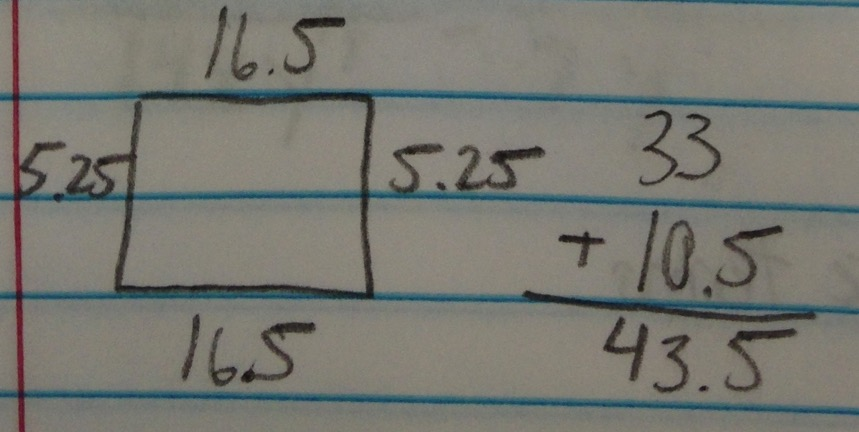 16.5
5.25 5.25
16.5
33
+ 10.5
43.5